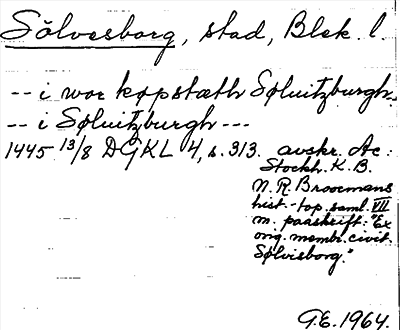 Sölvesborg, stad, Blek. l.
-- i wor køpstæth Søluitzburgh.
-- i Søluitzburgh ---
1445 13/8 DGKL 4, s. 313. avskr. Ac:
Stockh. K. B.
N. R. Broocmans
hist.-top. saml. VII
m. paaskrift: "Ex
orig. membr. civit.
Sølvisborg."
G.E. 1964.